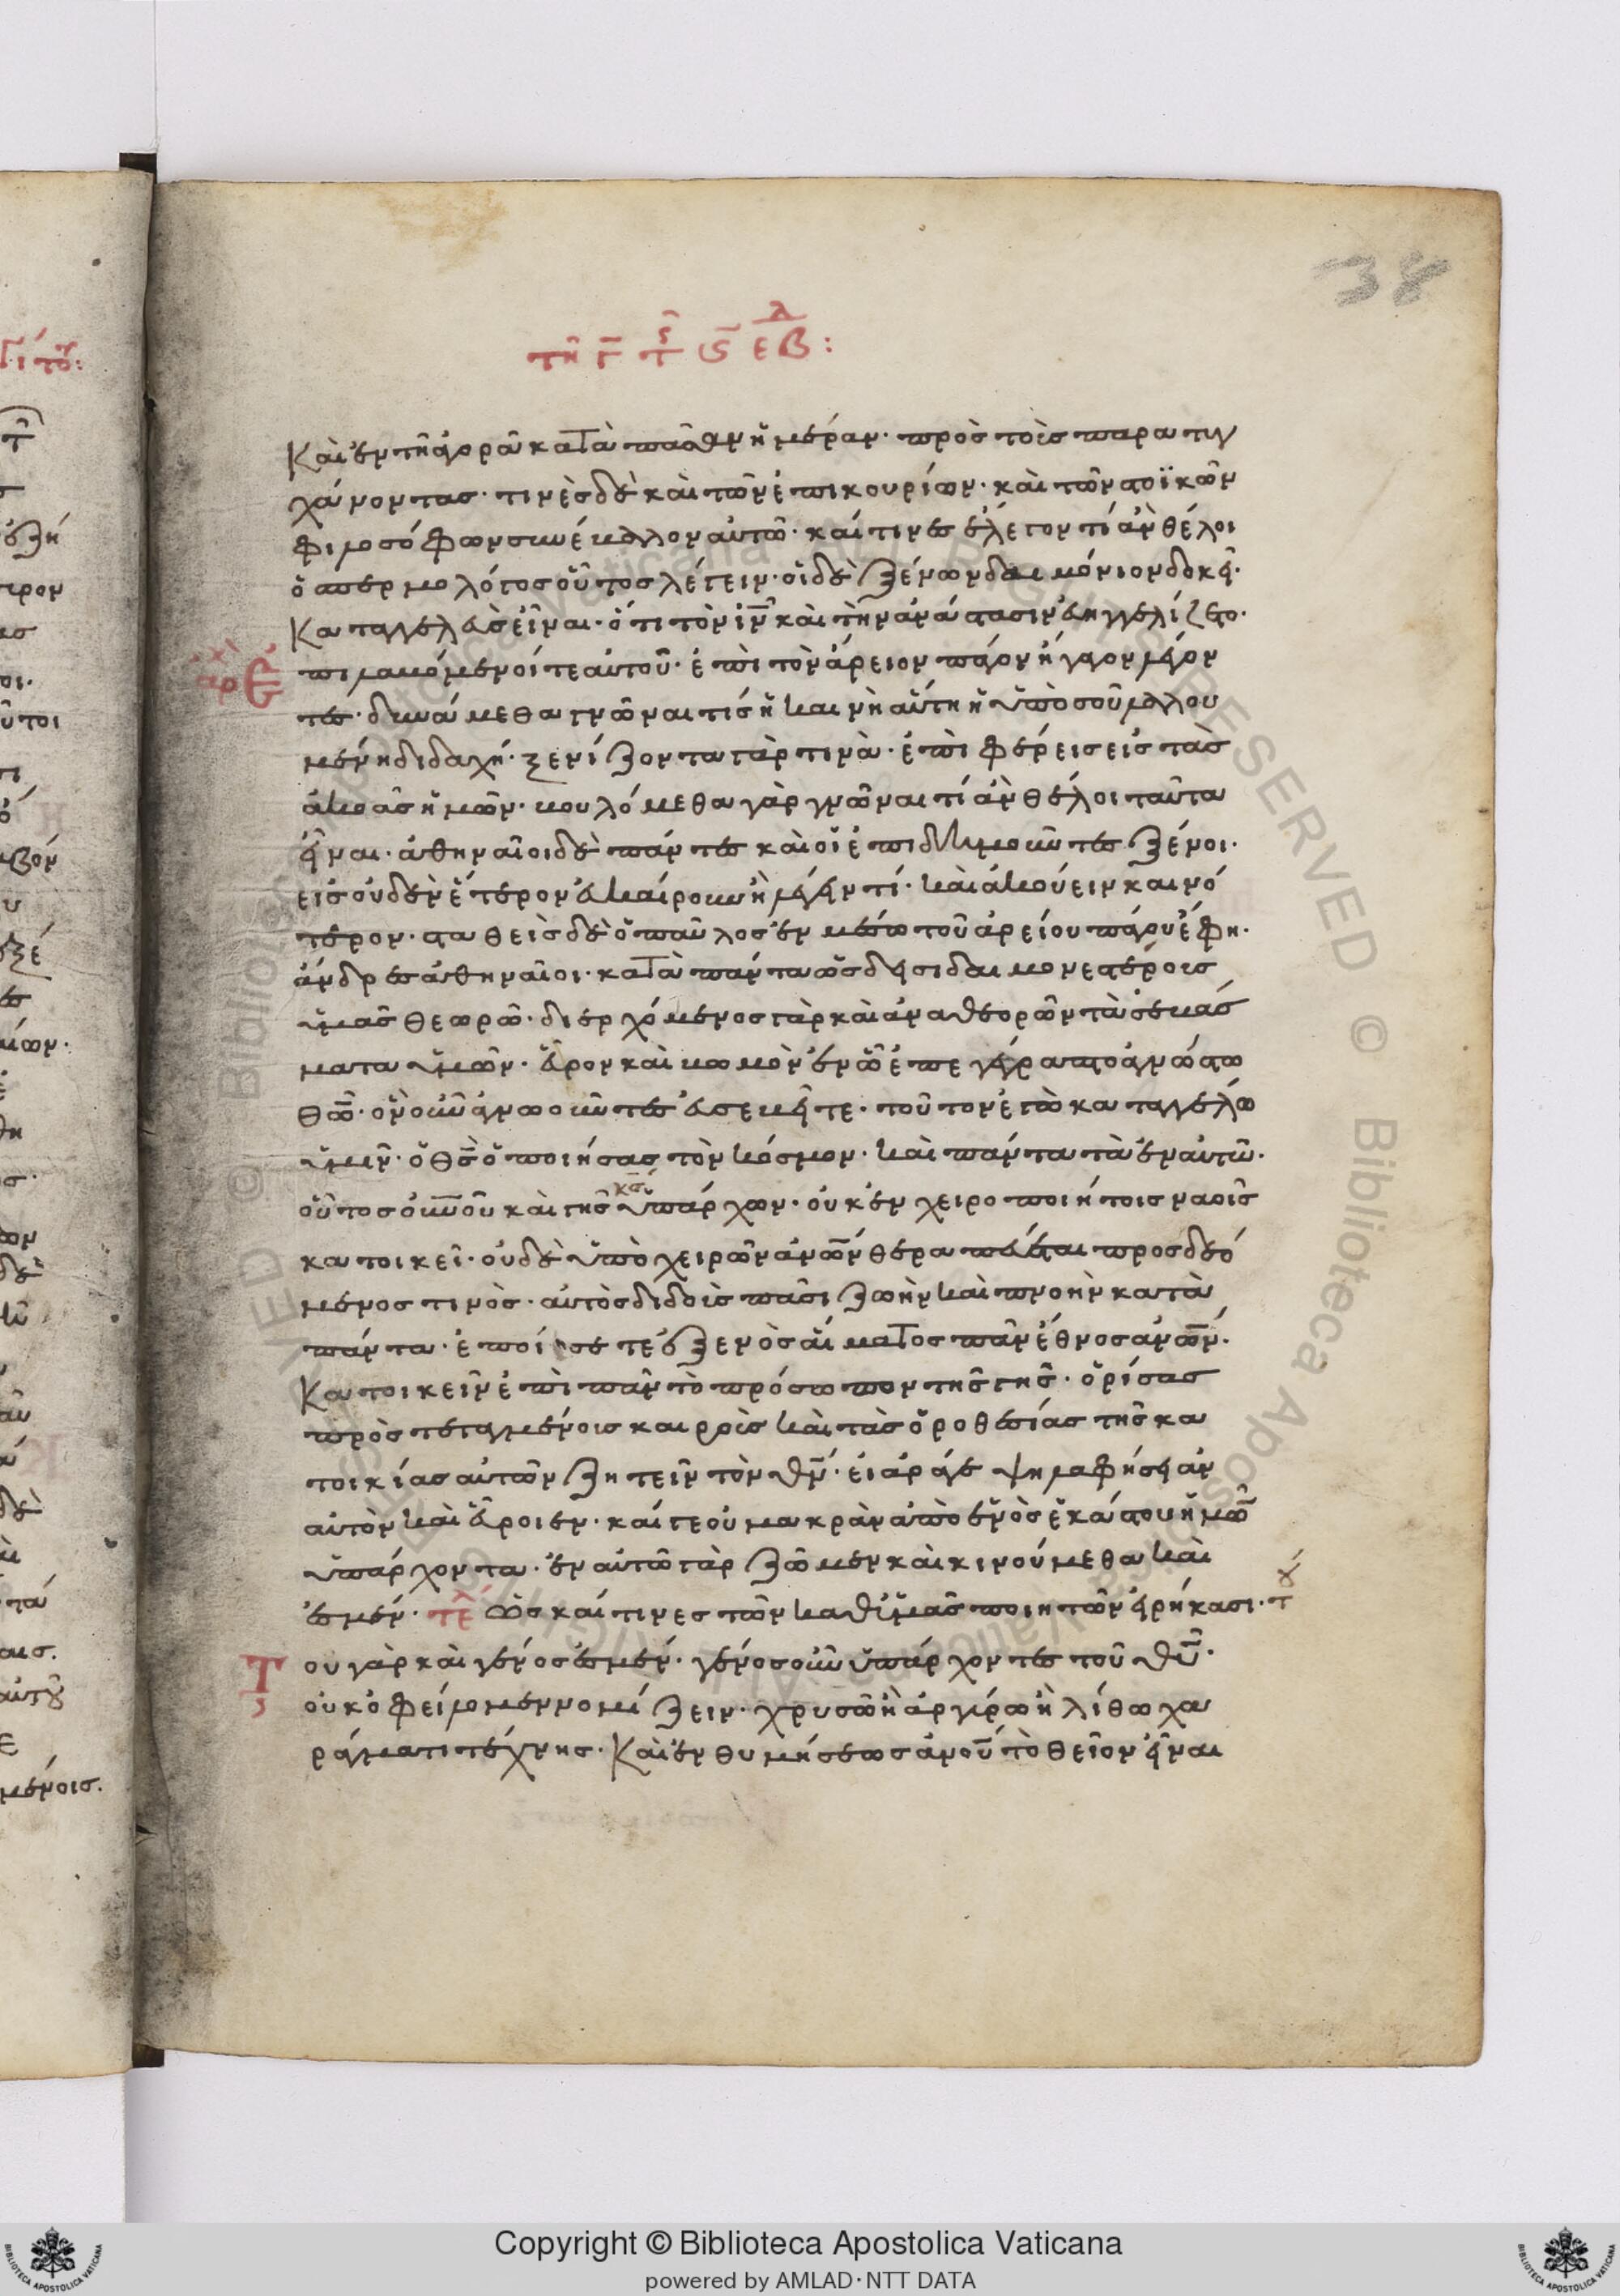 38
τῆ γ τ ς εβ:
Καὶ ἐν τῆ ἀγορᾶ κατὰ πᾶσαν ἡμέραν· πρὸς τοὺς παρατυγ
χάνοντας· τινὲς δὲ καὶ τῶν ἐπικουρίων· καὶ τῶν στοϊκῶν
φιλοσόφων συνέβαλλον αὐτῶ· καί τινες ἔλεγον τί ἂν θέλοι
ὁ σπερμολόγος οὗτος λέγειν· οἱ δὲ ξένων δαιμόνιον δοκεῖ·
Καταγγελεὺς εἶναι· ὅτι τὸν ιν καὶ τὴν ἀνάστασιν εὐηγγελίζετο·
ἀρ
πιλαβόμενοί τε αὐτοῦ· ἐπὶ τὸν ἄρειον πάγον ἤγαγον λέγον
τες· δυνάμεθα γνῶναι τίς ἡ καινὴ αὕτη ἡ ὑπὸ σοῦ λαλου
μένη διδαχή· ξενίζοντα γάρ τινὰ· ἐπιφέρεις εἰς τὰς
ἀκοὰς ἡμῶν· βουλόμεθα γὰρ γνῶναι τί ἂν θέλοι ταῦτα
εἶναι· ἀθηναῖοι δὲ πάντες καὶ οἱ ἐπιδημοῦντες ξένοι·
εἰς οὐδὲν ἕτερον εὐκαίρουν ἢ λέγειν τί· καὶ ἀκούειν καινό
τερον· σταθεὶς δὲ ὁ παῦλος ἐν μέσω τοῦ ἀρείου πάγου ἔφη·
ἄνδρες ἀθηναῖοι· κατὰ πάντα ὡς δεισιδαιμονεστέρους
ὑμᾶς θεωρῶ· διερχόμενος γὰρ καὶ ἀναθεορῶν τὰ σεβάσ
ματα ὑμῶν· εὗρον καὶ βωμὸν ἐν ᾧ ἐπεγέγραπτο ἀγνώστω
θῶ· ὃν οὖν ἀγνωοῦντες εὐσεβεῖτε· τοῦτον ἐγὼ καταγγέλλω
ὑμῖν· ὁ θς ὁ ποιήσας τὸν κόσμον· καὶ πάντα τὰ ἐν αὐτῶ·
οὗτος οὐνοῦ καὶ γῆς κς ὑπάρχων· οὐκ ἐν χειροποιήτοις ναοῖς
κατοικεῖ· οὐδὲ ὑπὸ χειρῶν ἀνων θεραπεύεται προσδεό
μενος τινὸς· αὐτὸς διδοὺς πᾶσι ζωὴν καὶ πνοὴν κατὰ
πάντα· ἐποίησέ τε ἐξ ενὸς αἵματος πᾶν ἔθνος ἀνων·
Κατοικεῖν ἐπὶ πᾶν τὸ πρόσωπον τῆς γῆς· ὁρίσας
προστεταγμένους καιροὺς καὶ τὰς ὁροθεσίας τῆς κα
τοικίας αὐτῶν ζητεῖν τὸν θν· εἰ ἄρα γε ψηλαφήσειαν
αὐτὸν καὶ εὕροιεν· καί γε οὐ μακρὰν ἀπὸ ἑνὸς ἑκάστου ἡμῶ
ὑπάρχοντα· ἐν αὐτῶ γὰρ ζῶμεν καὶ κινούμεθα καὶ
ἐσμέν· τε ὡς καί τινες τῶν καθ ὑμᾶς ποιητῶν εἰρήκασι· τ
Του γὰρ καὶ γένος ἐσμέν· γένος οὖν ὑπάρχοντες τοῦ θυ·
οὐκ ὀφείλομεν νομίζειν· χρυσῶ ἢ ἀργύρω ἢ λίθω χα
ράγματι τέχνης· Καὶ ἐνθυμήσεως ἀνου τὸ θεῖον εἶναι
Copyright © Biblioteca Apostolica Vaticana
powered by AMLAD·NTT DATA